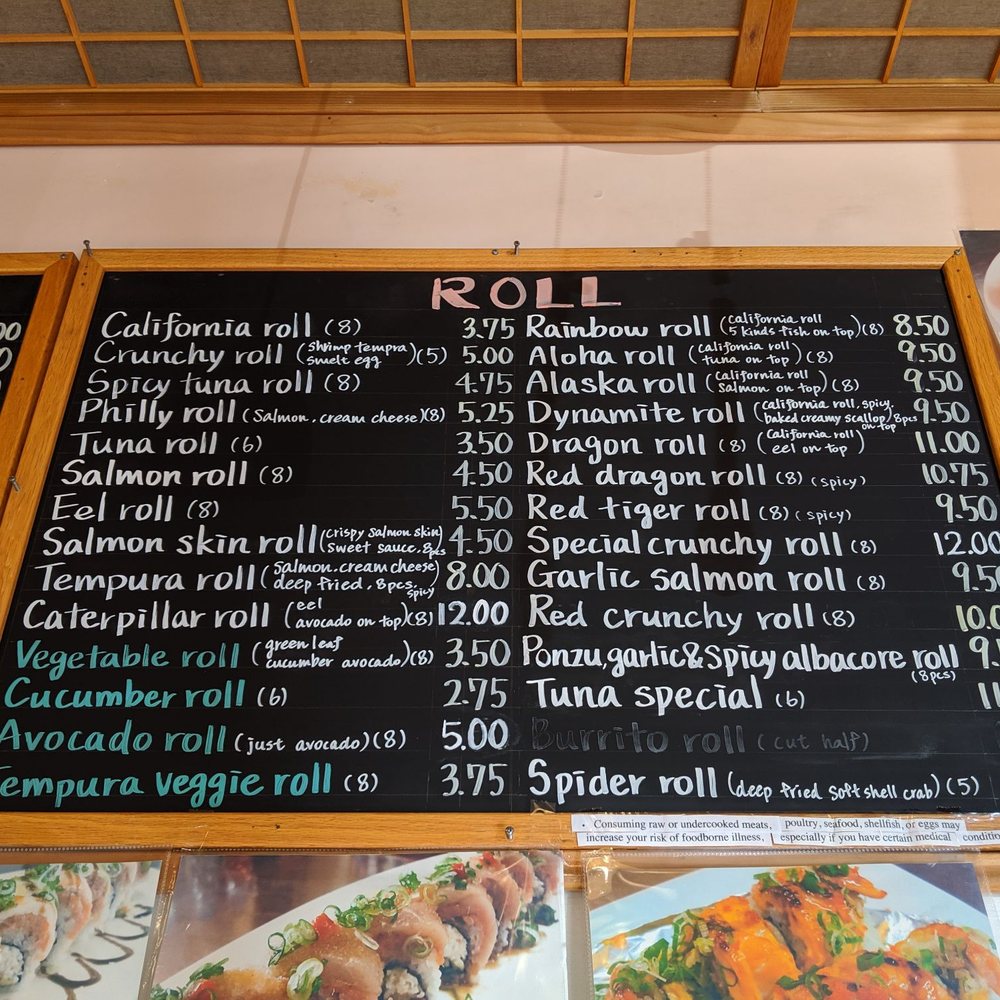 ROLL
California roll (8) 3.75
Crunchy roll (shrimp tempra smelt egg) (5) 5.00
Spicy tuna roll (8) 4.75
Philly roll (Salmon, cream cheese) (8) 5.25
Tuna roll (6) 3.50
Salmon roll (8) 4.50
Eel roll (8) 5.50
Salmon skin roll (crispy salmon skin, sweet sauce, 8pcs) 4.50
Tempura roll (salmon, cream cheese deep fried, 8pcs, spicy) 8.00
Caterpillar roll (eel avocado on top) (8) 12.00
Vegetable roll (green leaf cucumber avocado) (8) 3.50
Cucumber roll (6) 2.75
Avocado roll (just avocado) (8) 5.00
Tempura veggie roll (8) 3.75
Rainbow roll (california roll 5 kinds fish on top) (8) 8.50
Aloha roll (california roll tuna on top) (8) 9.50
Alaska roll (california roll Salmon on top) (8) 9.50
Dynamite roll (california roll, spicy, baked creamy scallop on top, 8pcs 9.50
Dragon roll (8) (california roll eel on top) 11.00
Red dragon roll (8) (spicy) 10.75
Red tiger roll (8) (spicy) 9.50
Special crunchy roll (8) 12.00
Garlic salmon roll (8) 9.5
Red crunchy roll (8) 10.0
Ponzu, garlic & Spicy albacore roll (8pcs) 9.
Tuna special (6) 11
Burrito roll (cut half)
Spider roll (deep fried soft shell crab) (5)
• Consuming raw or undercooked meats, poultry, seafood, shellfish, or eggs may
increase your risk of foodborne illness, especially if you have certain medical conditio